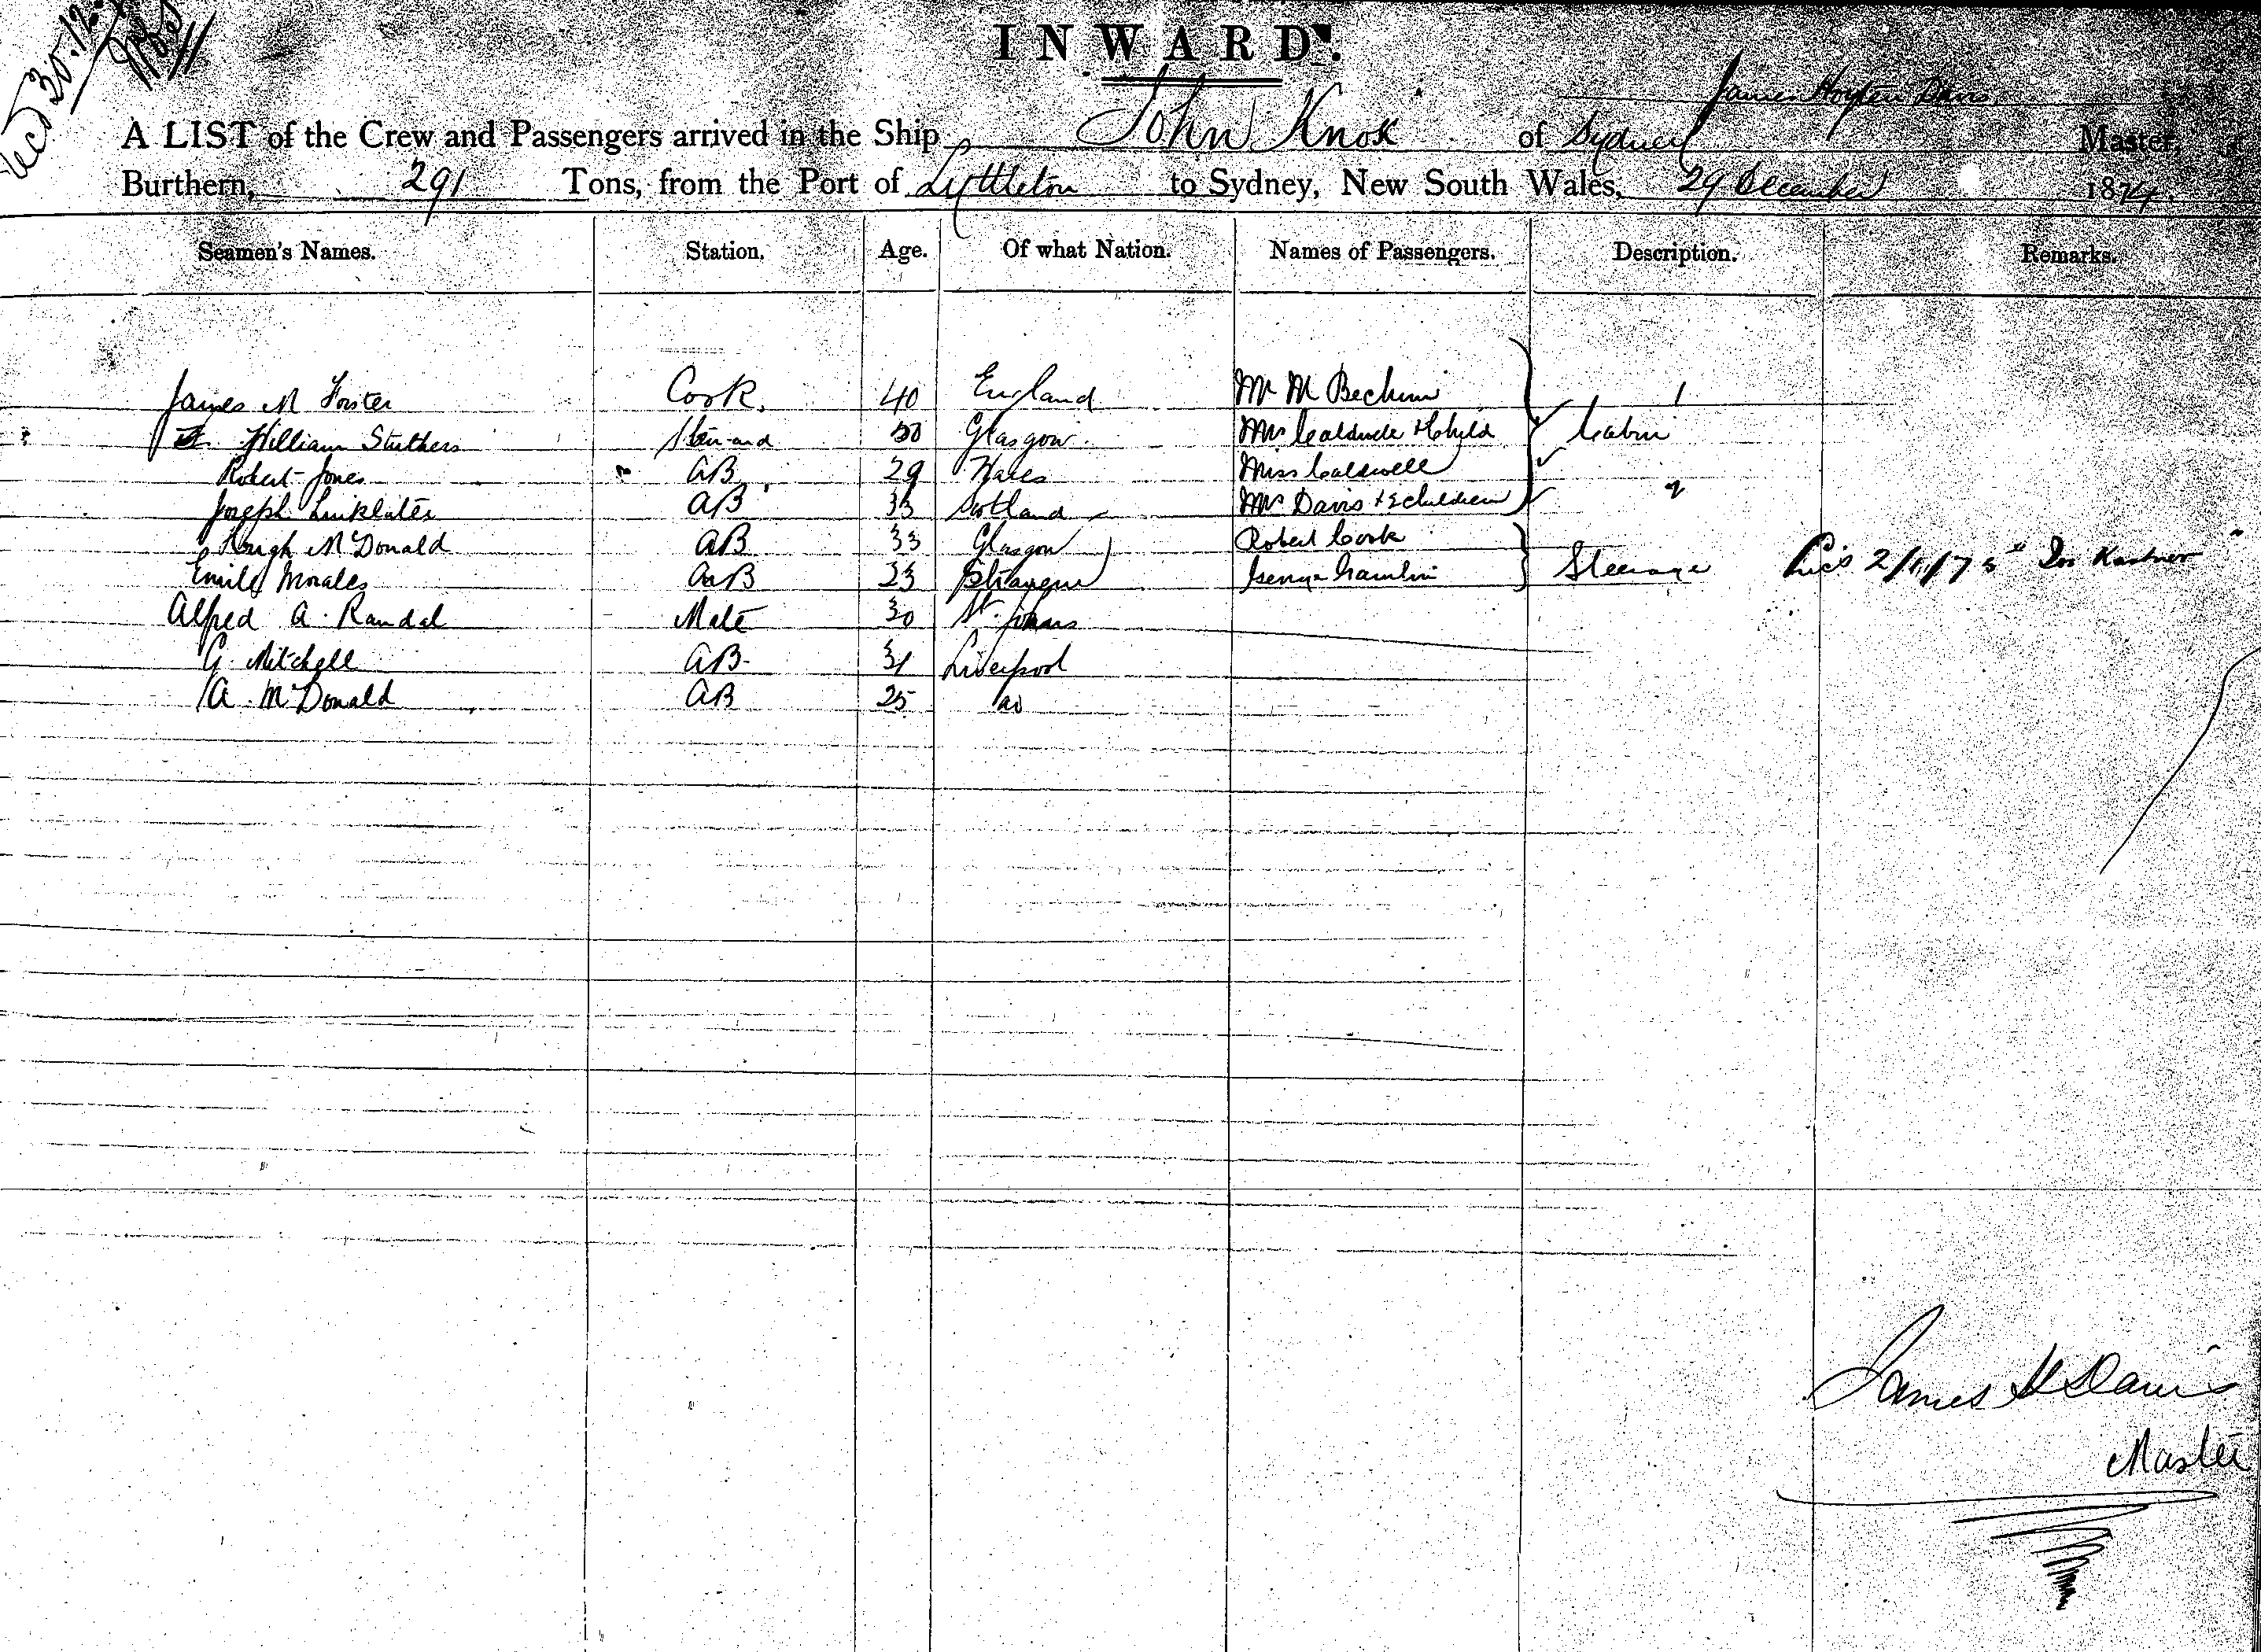 30.12.
INWARD.
James Hoyten Davis
A LIST of the Crew and Passengers arrived in the Ship John Knox of Sydney Master,
Burthern, 291 Tons, from the Port of Lyttleton to Sydney, New South Wales, 29 December 1874.
Seamen's Names. Station. Age. Of what Nation. Names of Passengers. Description. Remarks.
James M Forster Cook. 40 England Mr M 1
William Struthers Steward Glasgow. Mrs Caldwell & Child Cabin
Robert Jones AB 29 Wales Miss Caldwell
Joseph Linklater AB 33 Scotland Mrs Davis & 2 children 2
Hugh McDonald AB 33 Glasgow Robert Cook
Emile Morales AB 23 George Hamlin Steerage 2/1/75
Alfred A. Randal Mate 30 St. Johns
G. Mitchell AB 31 Liverpool
A. McDonald AB 25 do
James H Davis
Master